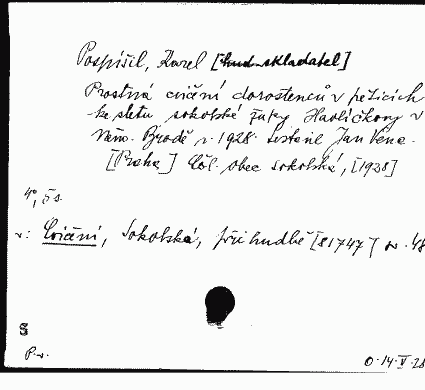 Pospíšil, Karel [hud. skladatel]
Prostná cvičení dorostenců v pořadích
ke sletu sokolské župy Havlíčkovy v
Něm. Brodě r. 1928. Sestavil Jan Věna.
[Praha] Čsl. obec sokolská, [1928]
4°, 5 s.
v: Cvičení, Sokolská, při hudbě [81747] 48
S
P.v.
O-14-V-28